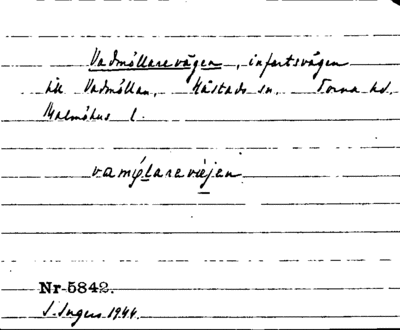 Vadmöllarevägen, infartsvägen
till Vadmöllan, Håstads sn. Torna hd.
Malmöhus l.
vamølarevejen
Nr 5842.
S. Ingers 1944.